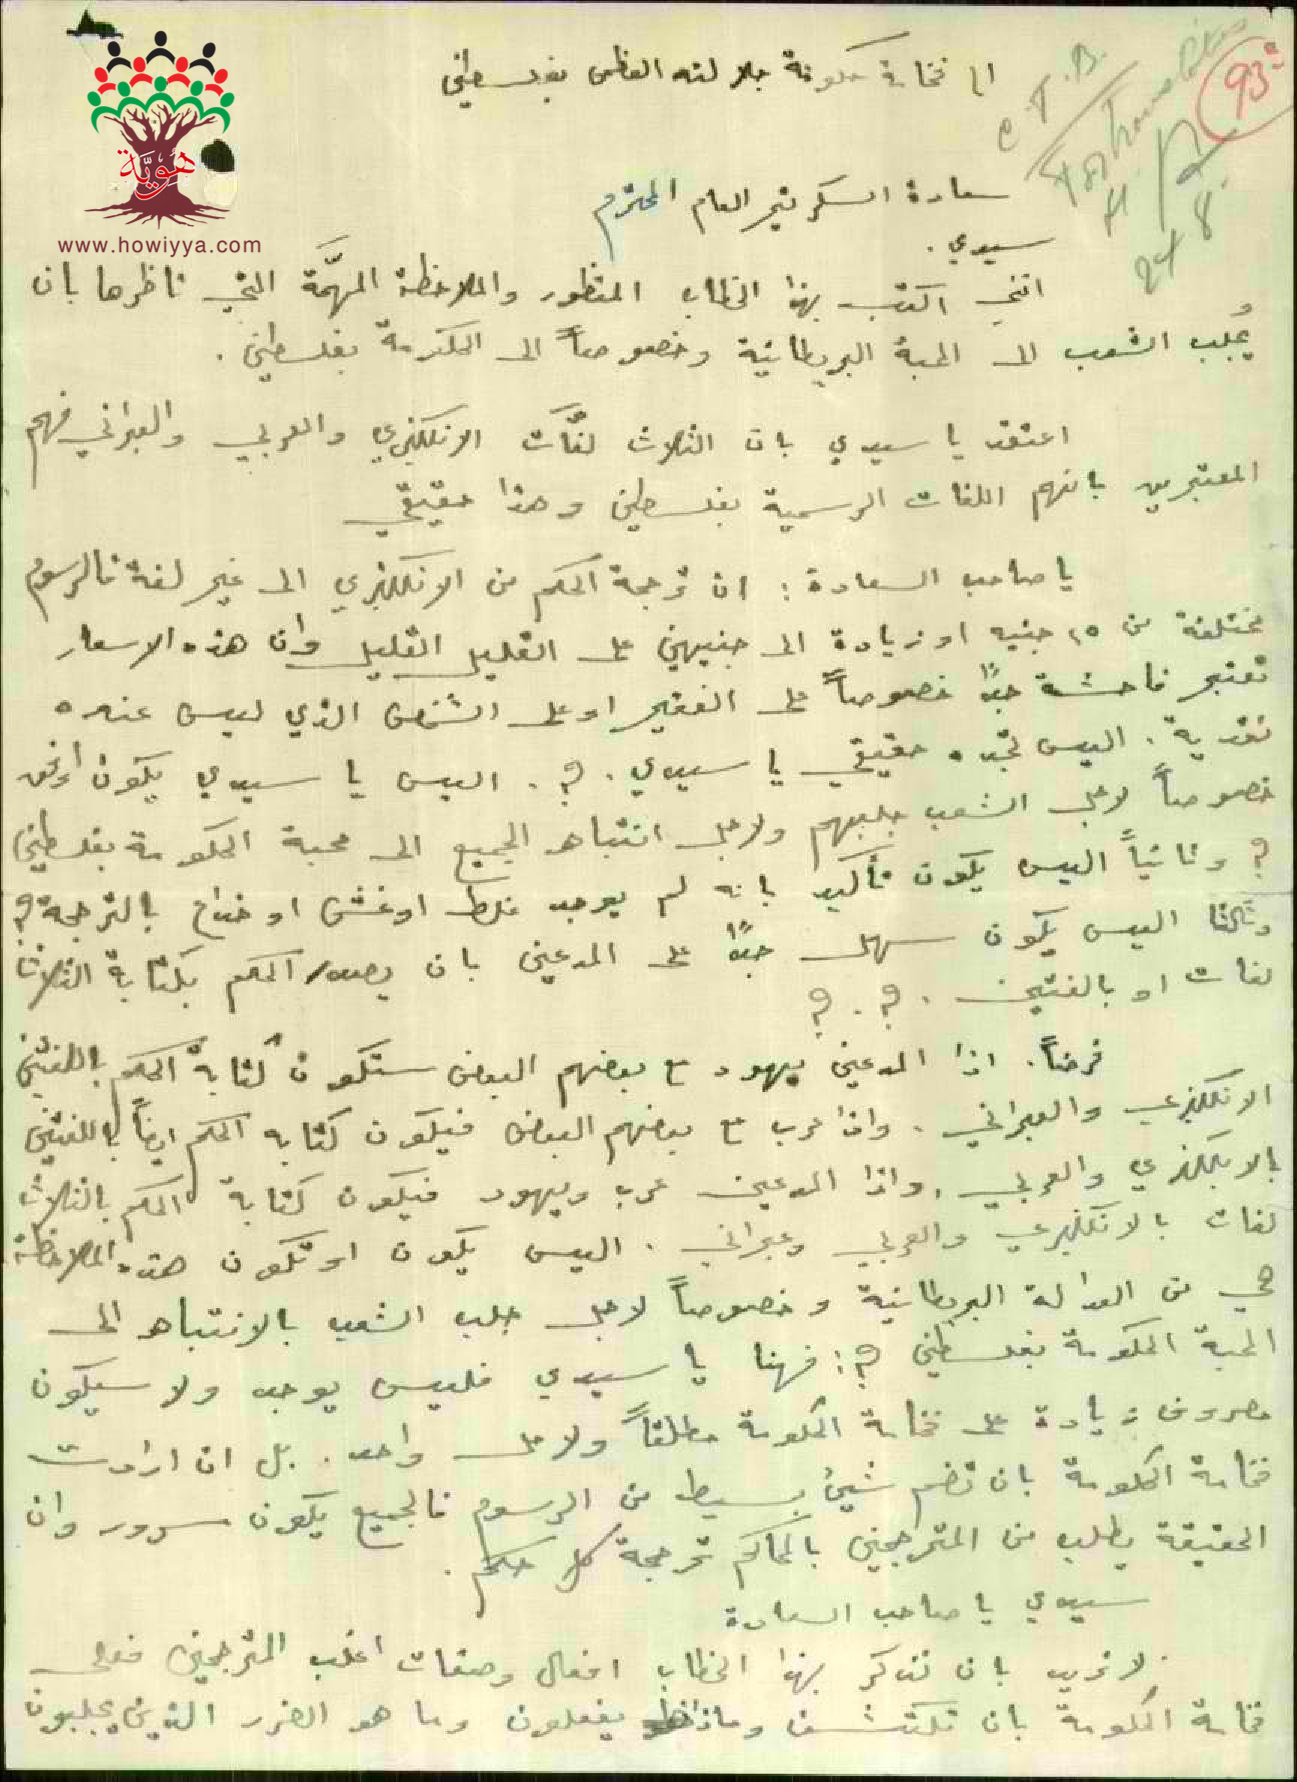 93a
C.T.B.
24/8
هُويَّة
www.howiyya.com
الى فخامة حكومة جلالته العظمى بفلسطين
سعادة السكرتير العام المحترم
سيدي .
انني اكتب بهذا الخطاب المنظور والملاحظة المهمَّة التي ناظرها بان
يُجلب الشعب الى المحبة البريطانية وخصوصاً الى الحكومة بفلسطين .
اعتقد يا سيدي بان الثلاث لغَّات الانكليزي والعربي والعبراني فهم
المعتبرين بانهم اللغات الرسمية بفلسطين وهذا حقيقي
يا صاحب السعادة : ان ترجمة الحكم من الانكليزي الى غير لغة فالرسوم
مختلفة من ١٥ جنيه او زيادة الى جنيهين على القليل القليل وان هذه الاسعار
تعتبر فاحشة جدًا خصوصاً على الفقير او على الشخص الذي ليس عنده
نقدية . اليس تجده حقيقي يا سيدي . ؟ . اليس يا سيدي يكون اوفق
خصوصاً لاجل الشعب جلبهم ولاجل انتباه الجميع الى محبة الحكومة بفلسطين
؟ وثانياً اليس يكون تأكيد بانه لم يوجد غلط او غش او خداع بالترجمة ؟
وثالثا اليس يكون سهل جدًا على المدعين بان يصدر الحكم بكتابة الثلاث
لغات او بالغتين . ؟ . ؟
فرضاً . اذا المدعين يهود مع بعضهم البعض ستكون كتابة الحكم باللغتين
الانكليزي والعبراني . واذا عرب مع بعضهم البعض فيكون كتابه الحكم ايضاً باللغتين
بالانكليزي والعربي . واذا المدعين عرب ويهود فيكون كتابة الحكم بالثلاث
لغات بالانكليزي والعربي وعبراني . اليس يكون او تكون هذه الملاحظة
هي من العدالة البريطانية وخصوصاً لاجل جلب الشعب بالانتباه الى
المحبة الحكومة بفلسطين ؟ : فهنا يا سيدي فليس يوجد ولا سيكون
مصروف زيادة على فخامة الحكومة مطلقاً ولا على واحد . بل ان ارادت
فخامة الحكومة بان تضم شيئ بسيط من الرسوم فالجميع يكون مسرور وان
الحقيقة يطلب من المترجمين بالمحاكم ترجمة كل حكم .
سيدي يا صاحب السعادة
لا غريب بان نتذكر بهذا الخطاب افعال وصفات اغلب المترجمين فعلى
فخامة الحكومة بان تكتشف وماذا يفعلون وما هو الضرر الذين يجلبون